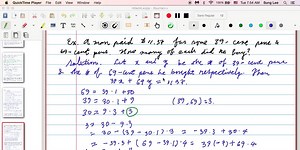 QuickTime Player File Edit View Window Help
Tue 7:54 AM Sung Lee
Ex. A man paid $11.37 for some 39-cent pens &
69-cent pens. How many of each did he buy?
Solution. Let x and y be the # of 39-cent pens
& the # of 69-cent pens he bought respectively. Then
39x + 69y =
69 = 39·1 + 30
39 = 30·1 + 9 (39, 69) = 3.
30 = 9·3 + 3
3 = 30 - 9·3
= 30 - (39 - 30·1)·3 = -39·3 + 30·4
= -39·3 + (69 - 39·1)·4 = 39(-7) + 69·4